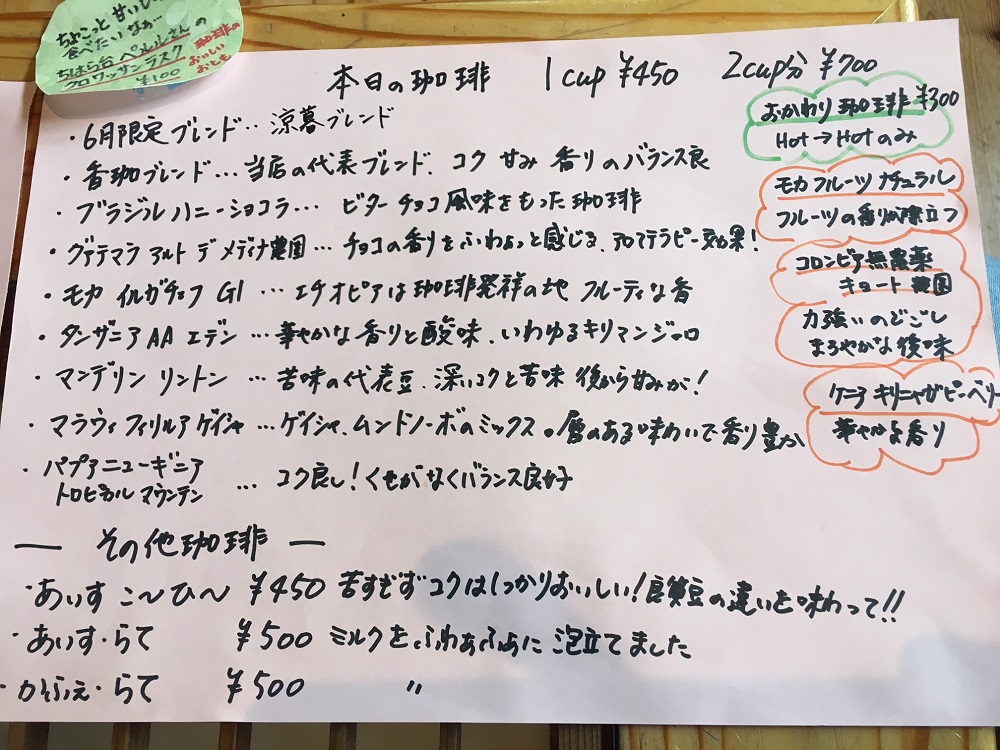 ちょこっと甘いもの
食べたいなぁ…
ちはら台 ペルルさんの
クロワッサンラスク
¥100
珈琲の
おいしい
おとも
本日の珈琲 1cup ¥450 2cup分 ¥700
・6月限定ブレンド… 涼暮ブレンド
・香珈ブレンド…当店の代表ブレンド、コク 甘み 香りのバランス良
・ブラジル ハニーショコラ… ビターチョコ風味をもった珈琲
・グァテマラ アルト デ メディナ農園…チョコの香りをふわぁっと感じる、アロマテラピー効果!
・モカ イルガチェフ G1 …エチオピアは珈琲発祥の地 フルーティな香
・タンザニア AA エデン …華やかな香りと酸味、いわゆるキリマンジャロ
・マンデリン リントン …苦味の代表豆、深いコクと苦味 後から甘みが!
・マラウィ フィリルア ゲイシャ …ゲイシャ、ムンドノーボのミックス。層のある味わいで香り豊か
・パプアニューギニア
トロピカル マウンテン … コク良し!くせがなくバランス良好
おかわり 珈琲 ¥300
Hot→Hotのみ
モカ フルーツ ナチュラル
フルーツの香りが際立つ
コロンビア 無農薬
キョート 農園
力強いのどごし
まろやかな後味
ケニア キリニャガ ピーベリー
華やかな香り
― その他珈琲 ―
・あいす こ〜ひ〜 ¥450 苦すぎず コクはしっかりおいしい!良質豆の違いを味わって!!
・あいす・らて ¥500 ミルクをふわぁふぁに泡立てました
・かふぇ・らて ¥500 〃